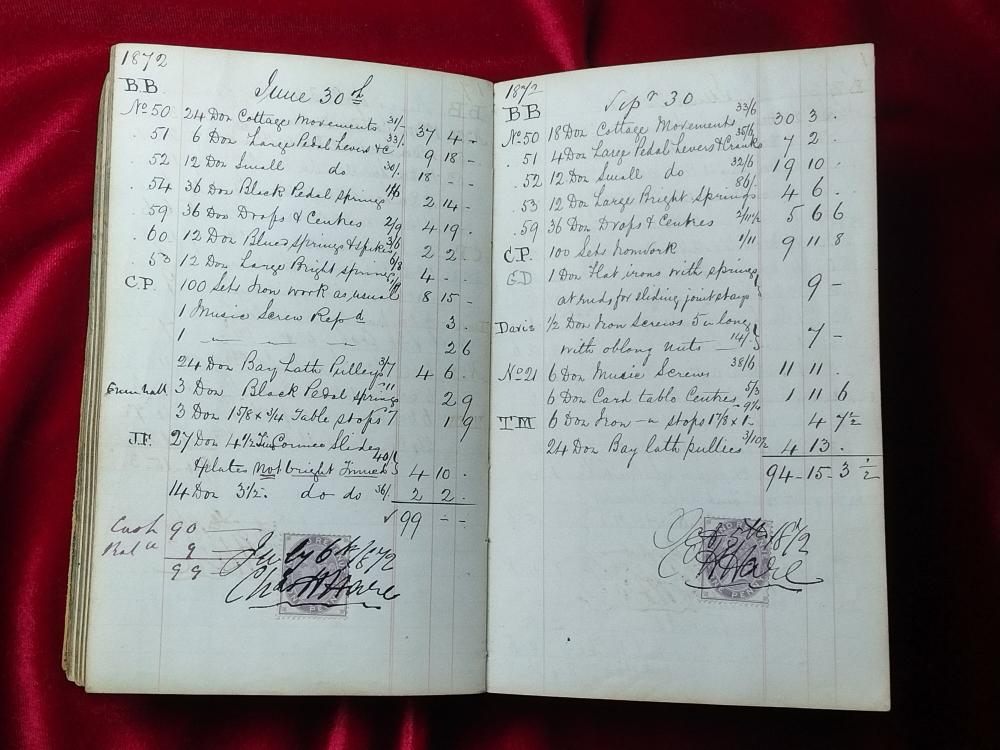 1872
June 30th
B.B.
No 50 24 Doz Cottage Movements 31/- 37 4 -
.51 6 Doz Large Pedal Levers &c 33/- 9 18 -
.52 12 Doz Small do 30/- 18 - -
.54 36 Doz Black Pedal Springs 1/6 2 14 -
.59 36 Doz Drops & Centres 2/9 4 19 .
.60 12 Doz Blued Springs & spikes 3/6 2 2 .
.53 12 Doz Large Bright springs 6/8 4 - -
C.P. 100 Sets Iron work as usual 8 15 -
1 Music Screw Repd 3 .
1 — — — 2 6
24 Doz Bay Lath Pulleys 3/7 4 6 .
3 Doz Black Pedal Springs -11 2 9
3 Doz 1 5/8 x 3/4 Table stops 7 1 9
J.F. 27 Doz 4 1/2 Cornice Slides
& plates Not bright 40/ 4 10 .
14 Doz 3 1/2. do do 36/- 2 2 .
✓ 99 - -
Cash 90
Balce 9
99
July 6th/1872
Chas H Hare
1872
Sepr 30
BB
No 50 18 Doz Cottage Movements 33/6 30 3 .
.51 4 Doz Large Pedal Levers & Cranks 35/6 7 2 .
.52 12 Doz Small do 32/6 19 10 .
.53 12 Doz Large Bright Springs 86/- 4 6 .
.59 36 Doz Drops & Centres 2/11 1/2 5 6 6
C.P. 100 Sets Ironwork 1/11 9 11 8
GD 1 Doz Flat irons with springs
at ends for sliding joint stays 9 -
Davis 1/2 Doz Iron Screws 5 in long
with oblong nuts — 14/- 7 -
No 21 6 Doz Music Screws 38/6 11 11 .
6 Doz Card table Centres 5/3 1 11 6
TM 6 Doz Iron — n stops 1 7/8 x 1 - 9 1/4 4 7 1/2
24 Doz Bay lath pullies 3/10 1/2 4 13 .
94 - 15 - 3 1/2
Oct 5th 1872
C H Hare